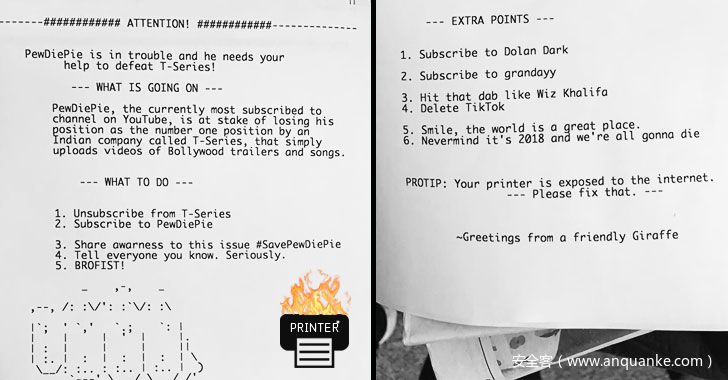 -------############ ATTENTION! ############-------------
PewDiePie is in trouble and he needs your
help to defeat T-Series!
--- WHAT IS GOING ON ---
PewDiePie, the currently most subscribed to
channel on YouTube, is at stake of losing his
position as the number one position by an
Indian company called T-Series, that simply
uploads videos of Bollywood trailers and songs.
--- WHAT TO DO ---
1. Unsubscribe from T-Series
2. Subscribe to PewDiePie
3. Share awarness to this issue #SavePewDiePie
4. Tell everyone you know. Seriously.
5. BROFIST!
PRINTER
--- EXTRA POINTS ---
1. Subscribe to Dolan Dark
2. Subscribe to grandayy
3. Hit that dab like Wiz Khalifa
4. Delete TikTok
5. Smile, the world is a great place.
6. Nevermind it's 2018 and we're all gonna die
PROTIP: Your printer is exposed to the internet.
--- Please fix that. ---
~Greetings from a friendly Giraffe
安全客（www.anquanke.com）